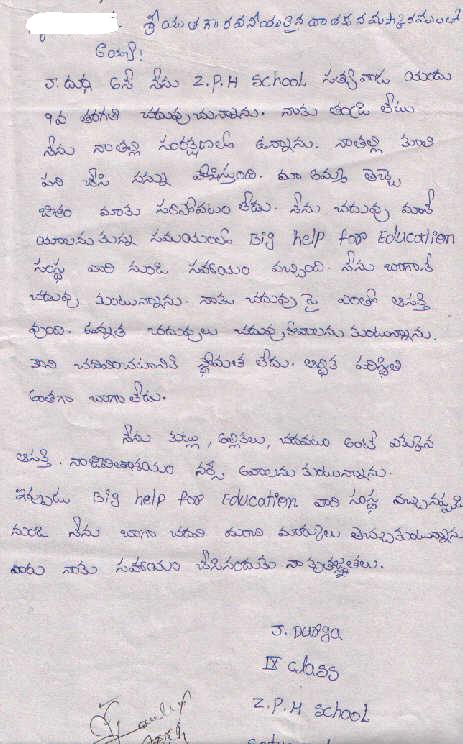 శ్రీయుత గౌరవనీయులైన వారికి నమస్కారములతో
అయ్యా!
J. దుర్గ అనే నేను Z.P.H School సత్యవాడు యందు
9వ తరగతి చదువుచున్నాను. నాకు తండ్రి లేడు
నేను నా తల్లి సంరక్షణలో ఉన్నాను. నాతల్లి కూలి
పని చేసి నన్ను పోషిస్తుంది. మా అమ్మ తెచ్చె
జీతం మాకు సరిపోవటం లేదు. నేను చదువు మానే
యాలనుకున్న సమయంలో Big help for Education
సంస్థ వారి నుండి సహాయం వచ్చింది. నేను బాగానే
చదువు కుంటున్నాను. నాకు చదువు పై ఎంతో ఆసక్తి
వుంది. ఉన్నత చదువులు చదువుకోవాలనుకుంటున్నాను.
కాని చదివించటానికి స్థోమత లేదు. ఆర్థిక పరిస్థితి
అంతగా బాగా లేదు.
నేను కుట్లు, అల్లికలు, చదవటం అంటే ఎక్కువ
ఆసక్తి. నా జీవితాశయం నర్సు అవాలనుకుంటున్నాను.
ఇప్పుడు Big help for Education వారి సంస్థ వచ్చినప్పటి
నుండి నేను బాగా చదివి మంచి మార్కులు తెచ్చుకుంటున్నాను
వారు నాకు సహాయం చేసినందుకు నా కృతజ్ఞతలు.
J. Durga
IX class
Z.P.H School